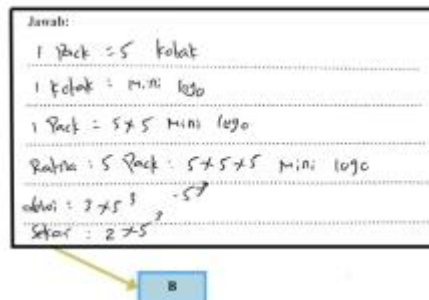 Jawab:
1 Pack = 5 kotak
1 kotak = Mini lego
1 Pack = 5 x 5 Mini lego
Ratna : 5 Pack : 5 x 5 x 5 Mini lego
: 3 x 5³ - 5³
: 2 x 5³
B